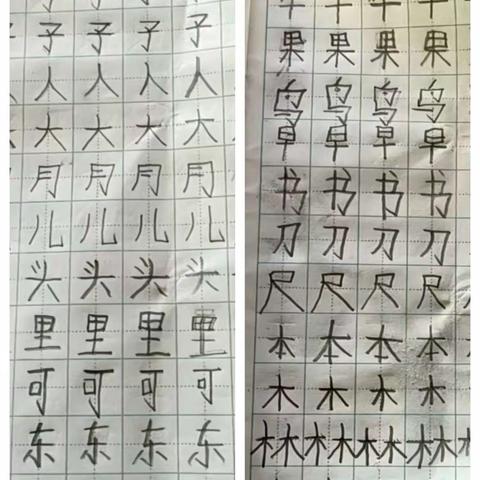 子 子 子 子
人 人 人 人
大 大 大 大
月 月 月 月
儿 儿 儿 儿
头 头 头 头
里 里 里 里
可 可 可 可
东 东 东 东
果 果 果 果
鸟 鸟 鸟 鸟
早 早 早 早
书 书 书 书
刀 刀 刀 刀
尺 尺 尺 尺
本 本 本 本
木 木 木 木
林 林 林 林